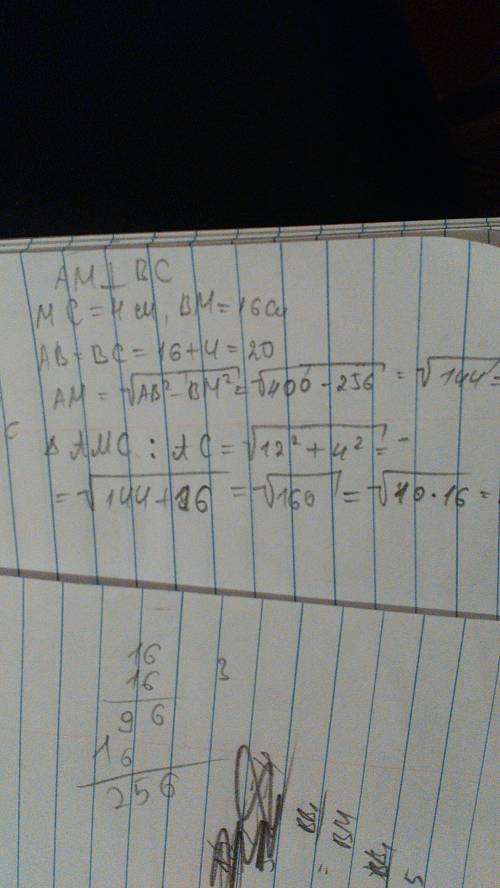 AM ⊥ BC
MC = 4 см, BM = 16 см
AB = BC = 16 + 4 = 20
AM = √AB² - BM² = √400 - 256 = √144 =
C
Δ AMC : AC = √12² + 4² = -
= √144 + 16 = √160 = √10 · 16 =
16
16
96
16
256
3
BB₁
= BM
BB₁
5